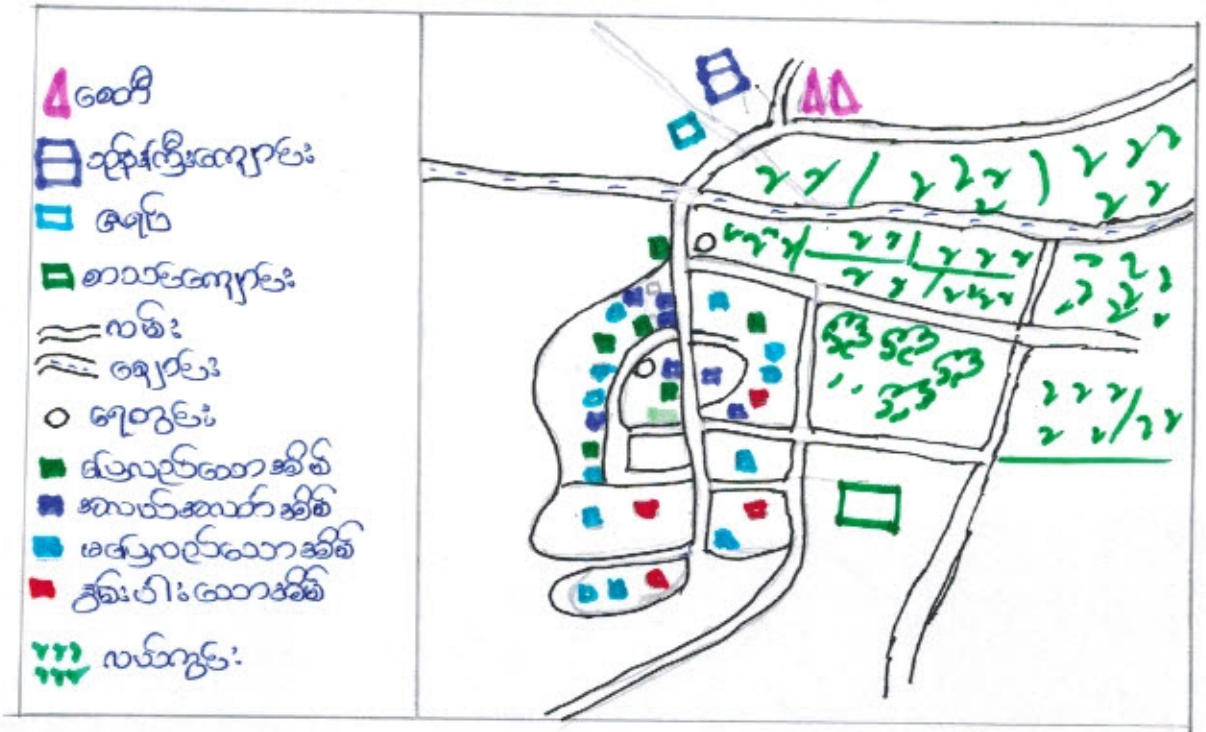 စေတီ
ဘုန်းကြီးကျောင်း
ဇရပ်
စာသင်ကျောင်း
လမ်း
ချောင်း
ရေတွင်း
ပြေလည်သောအိမ်
အလယ်အလတ်အိမ်
မပြေလည်သောအိမ်
နွမ်းပါးသောအိမ်
လယ်ကွင်း